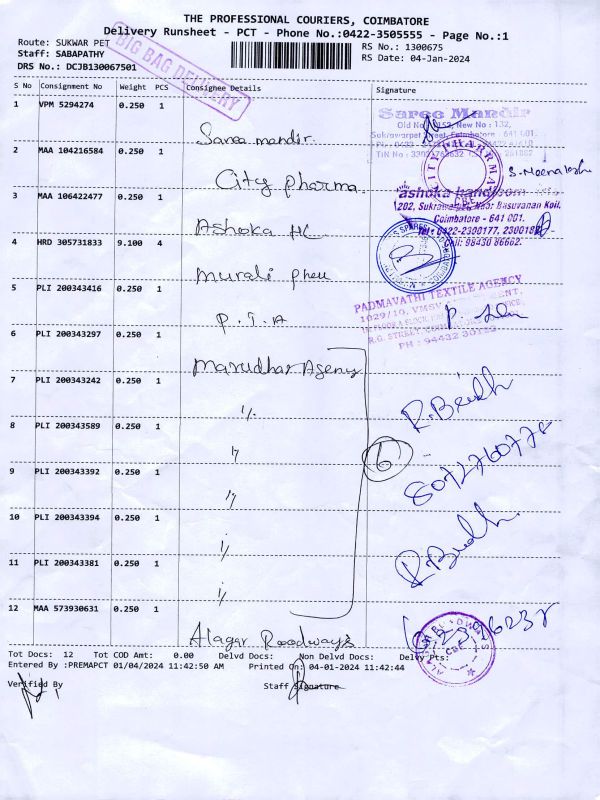 THE PROFESSIONAL COURIERS, COIMBATORE
Delivery Runsheet - PCT - Phone No.:0422-3505555 - Page No.:1
Route: SUKWAR PET
RS No.: 1300675
Staff: SABAPATHY
RS Date: 04-Jan-2024
DRS No.: DCJB130067501
BIG BAG DELIVERY
S No Consignment No Weight PCS Consignee Details Signature
1 VPM 5294274 0.250 1 Saree mandir
Saree Mandir
2 MAA 104216584 0.250 1 City pharma
CITY PHARRMA
S. Meenalochi
3 MAA 106422477 0.250 1 Ashoka HC
ashoka handloom
202, Sukrawarpet, Near Basuvanan Koil,
Coimbatore - 641 001.
Tel: 0422-2300177,
Cell: 98430 86662.
4 HRD 305731833 9.100 4 Murali
5 PLI 200343416 0.250 1 P.T.A
PADMAVATHI TEXTILE AGENCY
6 PLI 200343297 0.250 1 Marudhar Agency
7 PLI 200343242 0.250 1 "
8 PLI 200343589 0.250 1 "
6
8072760778
9 PLI 200343392 0.250 1 "
10 PLI 200343394 0.250 1 "
11 PLI 200343381 0.250 1 "
12 MAA 573930631 0.250 1 Alagar Roadways
Tot Docs: 12 Tot COD Amt: 0.00 Delvd Docs: Non Delvd Docs: Delvy Pts:
Entered By :PREMAPCT 01/04/2024 11:42:50 AM Printed On: 04-01-2024 11:42:44
Verified By Staff Signature